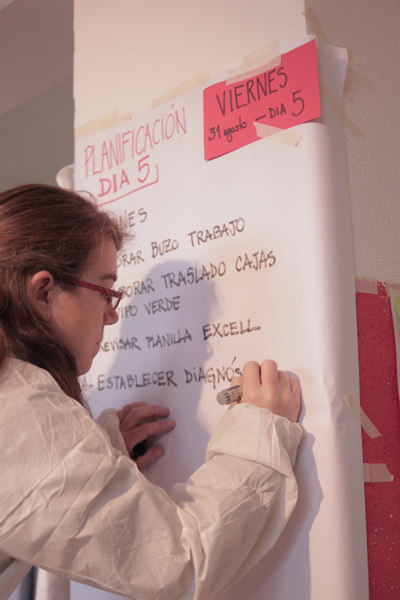 PLANIFICACIÓN
DIA 5
VIERNES
31 agosto - DIA 5
BUZO TRABAJO
TRASLADO CAJAS
VERDE
REVISAR PLANILLA EXCELL
ESTABLECER DIAGNÓS